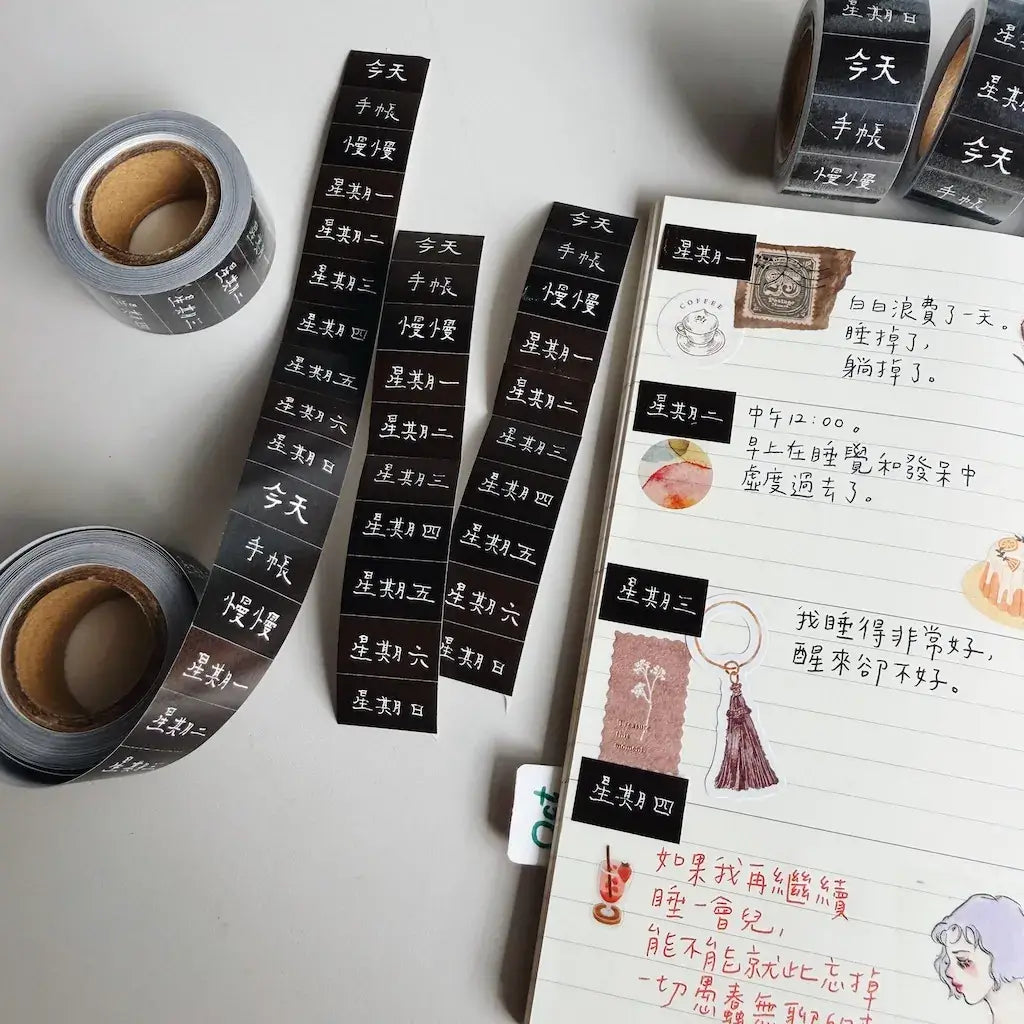 今天
手帳
慢慢
星期一
星期二
星期三
星期四
星期五
星期六
星期日
今天
手帳
慢慢
星期一
星期二
星期三
今天
手帳
慢慢
星期一
星期二
星期三
星期四
星期五
星期六
星期日
今天
手帳
慢慢
星期一
星期二
星期三
星期四
星期五
星期六
星期日
星期日
今天
手帳
慢慢
今天
手帳
星期一
COFFEE
25
Postage
白白浪費了一天。
睡掉了,
躺掉了。
星期二
中午12:00。
早上在睡覺和發呆中
虛度過去了。
星期三
我睡得非常好,
醒來卻不好。
Treasure
moment
星期四
Oct
如果我再繼續
睡一會兒,
能不能就此忘掉
一切愚蠢無聊的